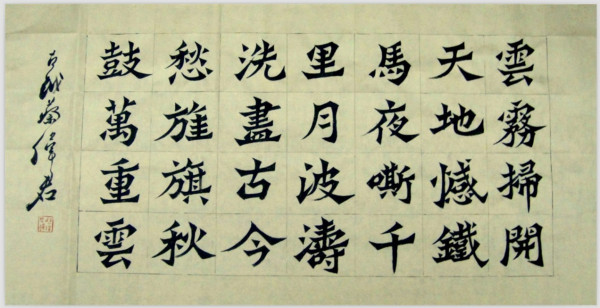 雲霧掃開
天地憾鐵
馬夜嘶千
里月波濤
洗盡古今
愁旌旗秋
鼓萬重雲